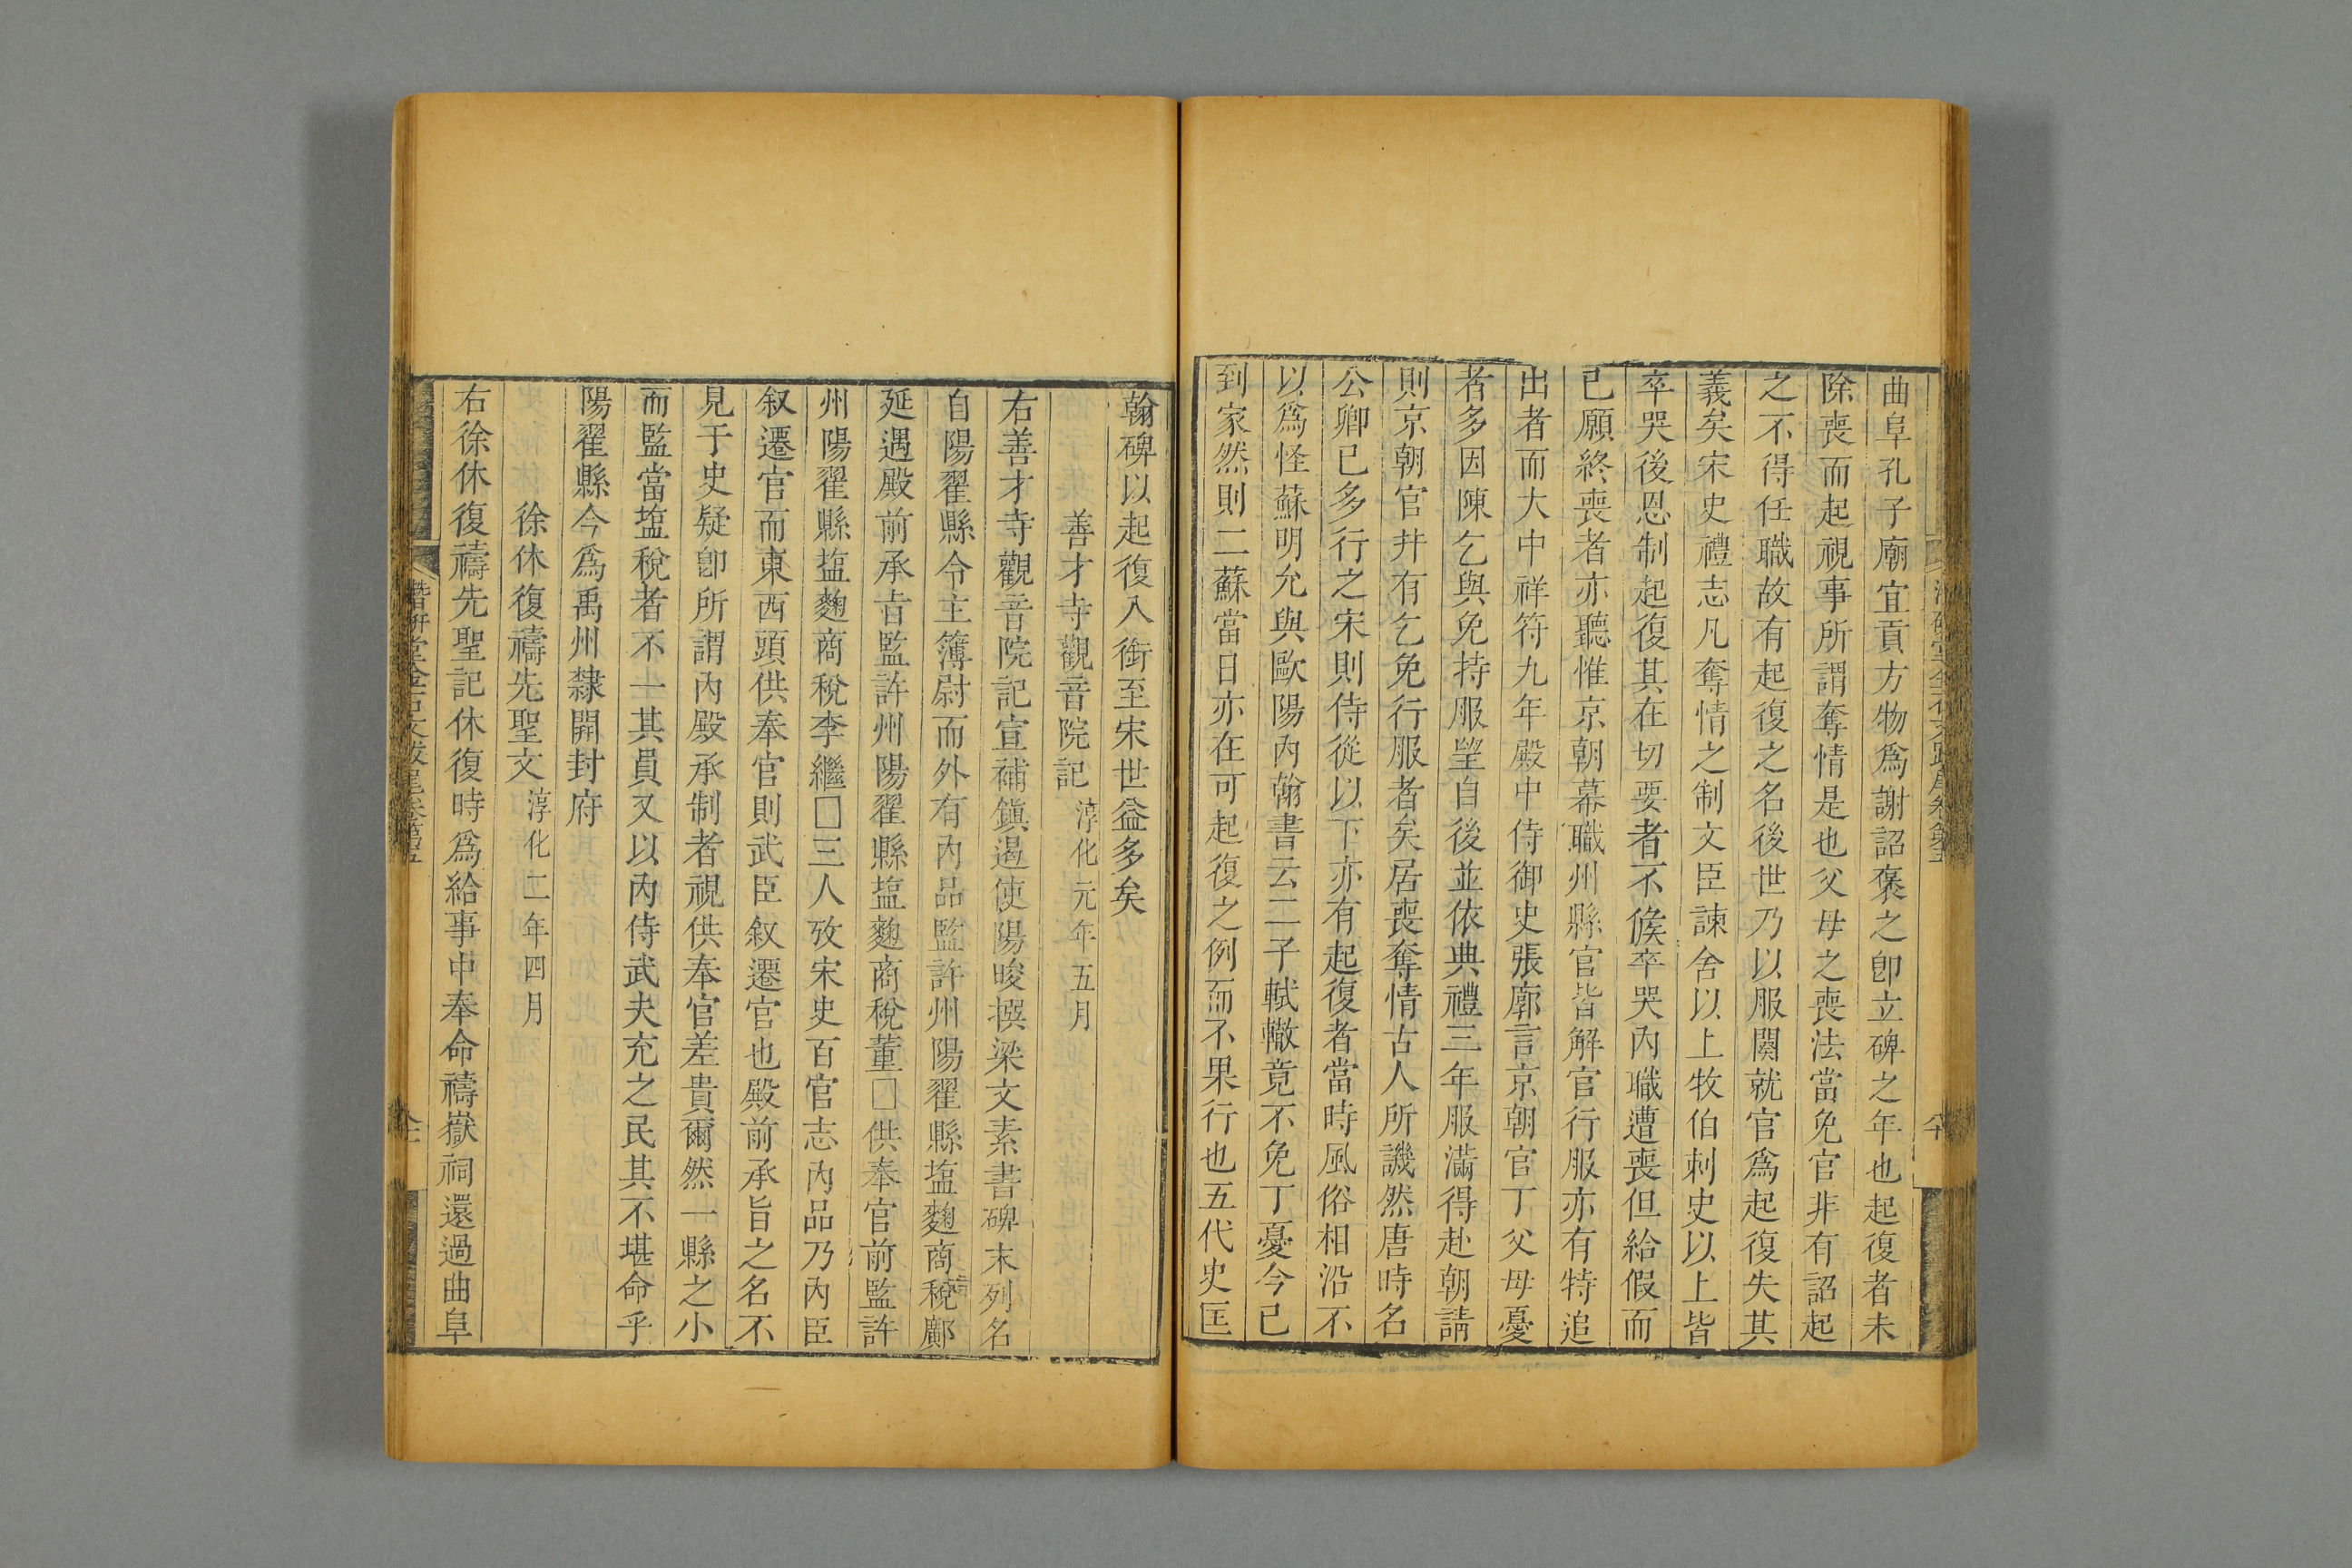 曲阜孔子廟宜貢方物爲謝詔褒之卽立碑之年也起復者未
除喪而起視事所謂奪情是也父母之喪法當免官非有詔起
之不得任職故有起復之名後世乃以服闋就官爲起復失其
義矣宋史禮志凡奪情之制文臣諫舍以上牧伯刺史以上皆
卒哭後恩制起復其在切要者不俟卒哭內職遭喪但給假而
已願終喪者亦聽惟京朝幕職州縣官皆解官行服亦有特追
出者而大中祥符九年殿中侍御史張廓言京朝官丁父母憂
者多因陳乞與免持服望自後並依典禮三年服滿得赴朝請
則京朝官幷有乞免行服者矣居喪奪情古人所譏然唐時名
公卿已多行之宋則侍從以下亦有起復者當時風俗相沿不
以爲怪蘇明允與歐陽內翰書云二子軾轍竟不免丁憂今已
到家然則二蘇當日亦在可起復之例而不果行也五代史匡
翰碑以起復入銜至宋世益多矣
善才寺觀音院記 淳化元年五月
右善才寺觀音院記宣補鎭遏使陽晙撰梁文素書碑末列名
自陽翟縣令主簿尉而外有內品監許州陽翟縣塩麴商稅酈
延遇殿前承旨監許州陽翟縣塩麴商稅董□供奉官前監許
州陽翟縣塩麴商稅李繼□三人攷宋史百官志內品乃內臣
叙遷官而東西頭供奉官則武臣叙遷官也殿前承旨之名不
見于史疑卽所謂內殿承制者視供奉官差貴爾然一縣之小
而監當塩稅者不一其員又以內侍武夫充之民其不堪命乎
陽翟縣今爲禹州隸開封府
徐休復禱先聖文 淳化二年四月
右徐休復禱先聖記休復時爲給事中奉命禱嶽祠還過曲阜
潛硏堂金石文跋尾卷第五